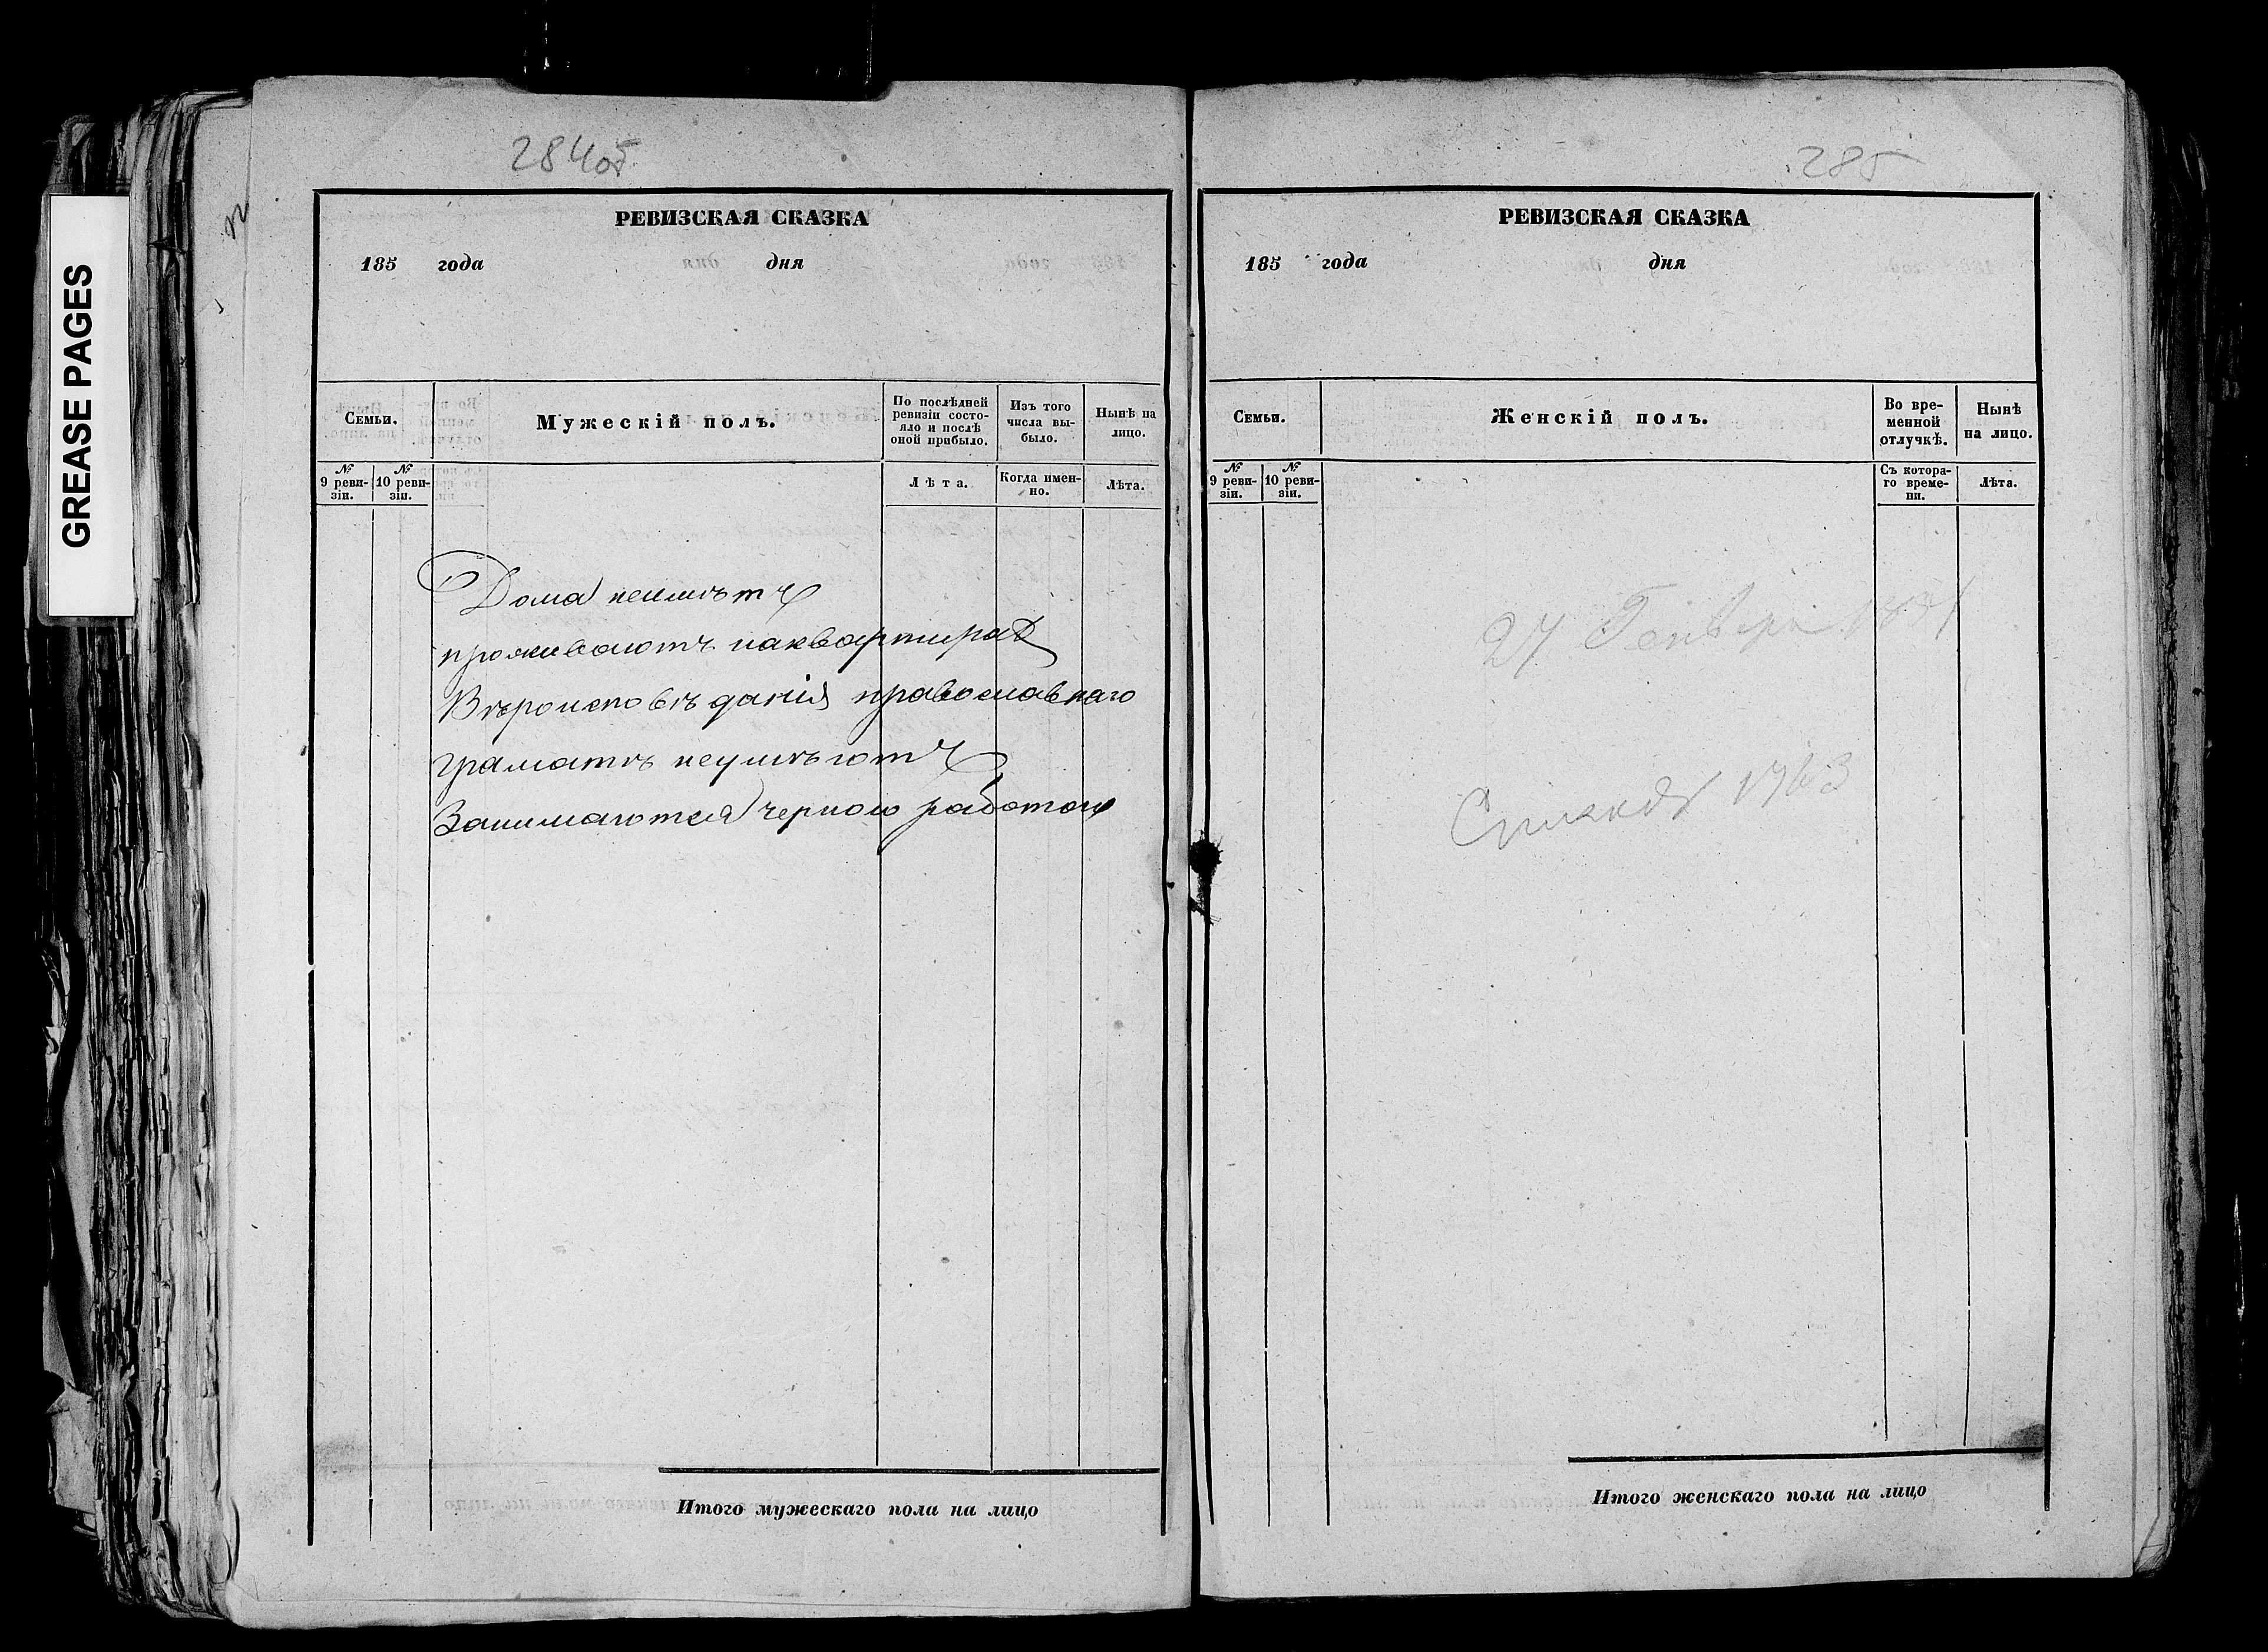 GREASE PAGES
284 об
РЕВИЗСКАЯ СКАЗКА
185 года дня
Семьи.
Мужескій полъ.
По послѣдней ревизіи состо-
яло и послѣ
оной прибыло.
Изъ того
числа вы-
было.
Нынѣ на
лицо.
№ 9 реви-
зіи.
№ 10 реви-
зіи.
Лѣта.
Когда имен-
но.
Лѣта.
Дома неимѣтъ
проживаютъ наквартирѣ
Вѣроисповѣданія православнаго
граматѣ неумѣютъ
Занимаются черною работою
Итого мужескаго пола на лицо
285
РЕВИЗСКАЯ СКАЗКА
185 года дня
Семьи.
Женскій полъ.
Во вре-
менной
отлучкѣ.
Нынѣ
на лицо.
№ 9 реви-
зіи.
№ 10 реви-
зіи.
Съ котора-
го време-
ни.
Лѣта.
27 Генваря
Итого женскаго пола на лицо